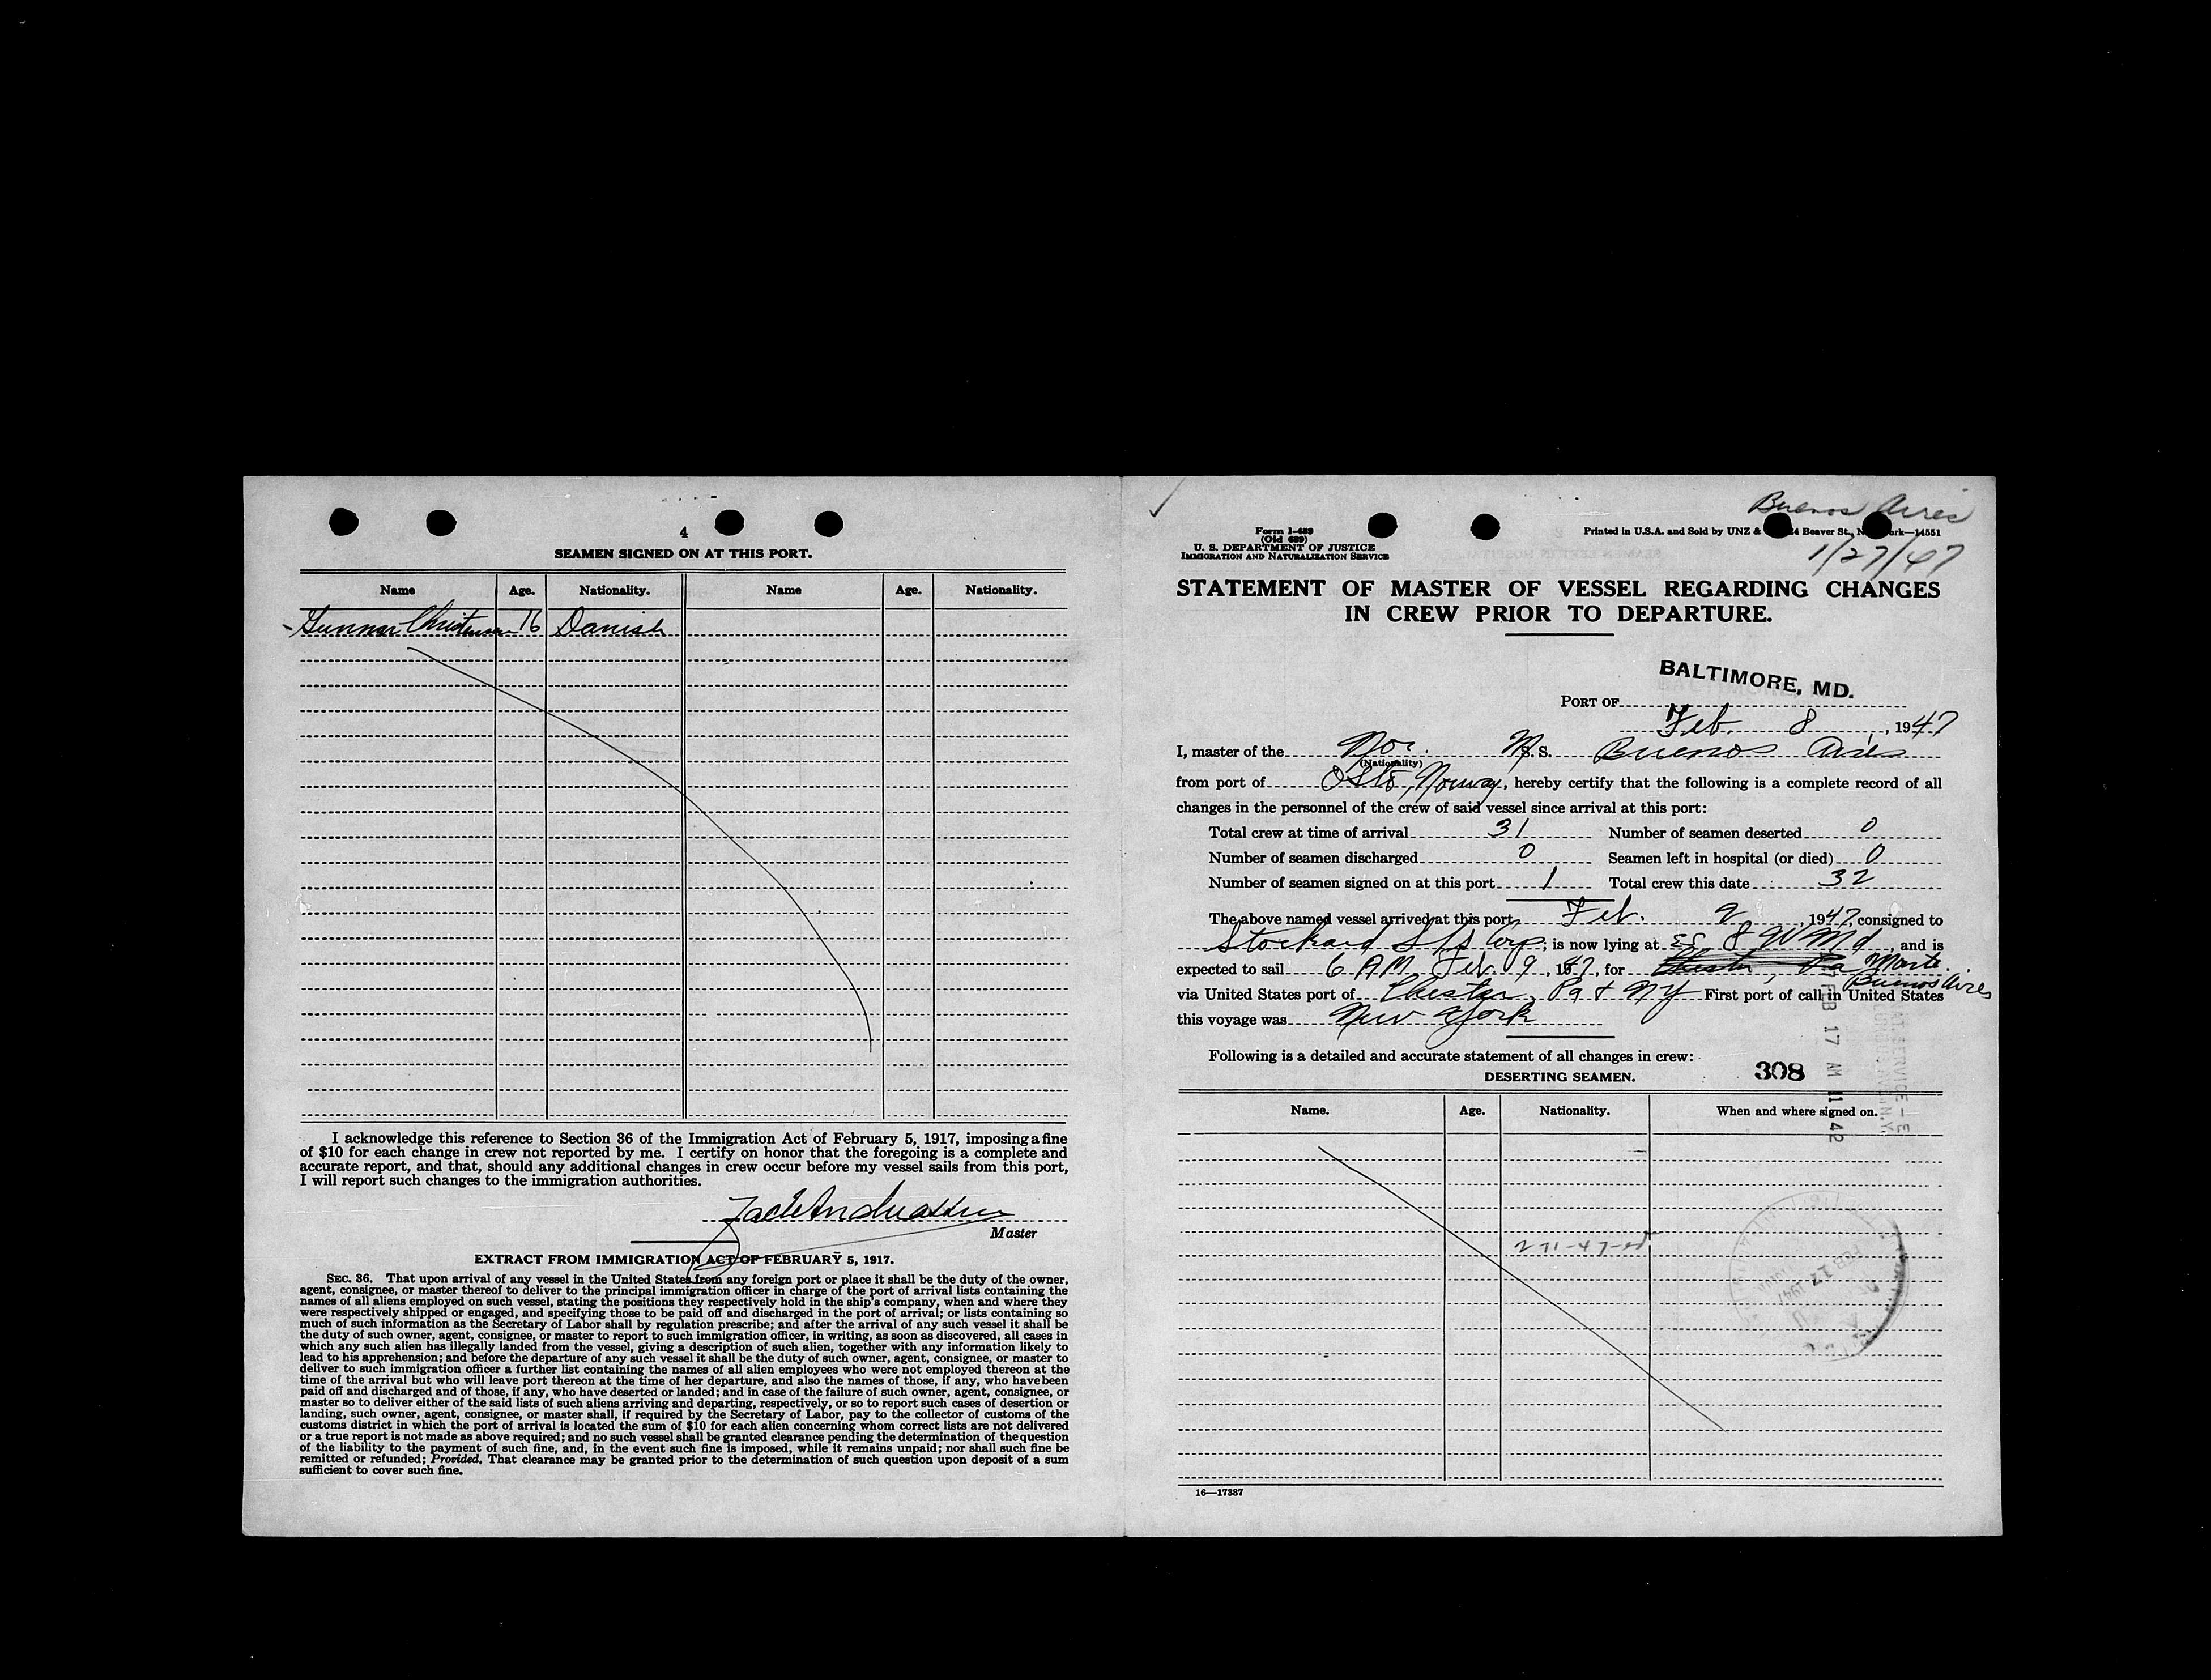 4
SEAMEN SIGNED ON AT THIS PORT.
Name Age. Nationality. Name Age. Nationality.
Gunnar Christensen 16 Danish
I acknowledge this reference to Section 36 of the Immigration Act of February 5, 1917, imposing a fine
of $10 for each change in crew not reported by me. I certify on honor that the foregoing is a complete and
accurate report, and that, should any additional changes in crew occur before my vessel sails from this port,
I will report such changes to the immigration authorities.
Master
EXTRACT FROM IMMIGRATION ACT OF FEBRUARY 5, 1917.
SEC. 36. That upon arrival of any vessel in the United States from any foreign port or place it shall be the duty of the owner,
agent, consignee, or master thereof to deliver to the principal immigration officer in charge of the port of arrival lists containing the
names of all aliens employed on such vessel, stating the positions they respectively hold in the ship's company, when and where they
were respectively shipped or engaged, and specifying those to be paid off and discharged in the port of arrival; or lists containing so
much of such information as the Secretary of Labor shall by regulation prescribe; and after the arrival of any such vessel it shall be
the duty of such owner, agent, consignee, or master to report to such immigration officer, in writing, as soon as discovered, all cases in
which any such alien has illegally landed from the vessel, giving a description of such alien, together with any information likely to
lead to his apprehension; and before the departure of any such vessel it shall be the duty of such owner, agent, consignee, or master to
deliver to such immigration officer a further list containing the names of all alien employees who were not employed thereon at the
time of the arrival but who will leave port thereon at the time of her departure, and also the names of those, if any, who have been
paid off and discharged and of those, if any, who have deserted or landed; and in case of the failure of such owner, agent, consignee, or
master so to deliver either of the said lists of such aliens arriving and departing, respectively, or so to report such cases of desertion or
landing, such owner, agent, consignee, or master shall, if required by the Secretary of Labor, pay to the collector of customs of the
customs district in which the port of arrival is located the sum of $10 for each alien concerning whom correct lists are not delivered
or a true report is not made as above required; and no such vessel shall be granted clearance pending the determination of the question
of the liability to the payment of such fine, and, in the event such fine is imposed, while it remains unpaid; nor shall such fine be
remitted or refunded; Provided, That clearance may be granted prior to the determination of such question upon deposit of a sum
sufficient to cover such fine.
Buenos Aires
1/27/47
Form I-489
(Old 689)
U. S. DEPARTMENT OF JUSTICE
IMMIGRATION AND NATURALIZATION SERVICE
Printed in U.S.A. and Sold by UNZ & 24 Beaver St., N ork—14551
STATEMENT OF MASTER OF VESSEL REGARDING CHANGES
IN CREW PRIOR TO DEPARTURE.
PORT OF BALTIMORE, MD.
Feb. 8, 1947
I, master of the Nor. M S. S. Buenos Aires
(Nationality)
from port of Oslo, Norway, hereby certify that the following is a complete record of all
changes in the personnel of the crew of said vessel since arrival at this port:
Total crew at time of arrival 31 Number of seamen deserted 0
Number of seamen discharged 0 Seamen left in hospital (or died) 0
Number of seamen signed on at this port 1 Total crew this date 32
The above named vessel arrived at this port Feb. 2, 1947, consigned to
Stockard S/S Corp; is now lying at 8 W Md, and is
expected to sail 6 AM Feb. 9, 1947, for Chester, Pa
Buenos Aires
via United States port of Chester, Pa & NY First port of call in United States
this voyage was New York
Following is a detailed and accurate statement of all changes in crew:
308
DESERTING SEAMEN.
Name. Age. Nationality. When and where signed on.
FEB 17 AM 11 42
FEB 17 1947
16—17387